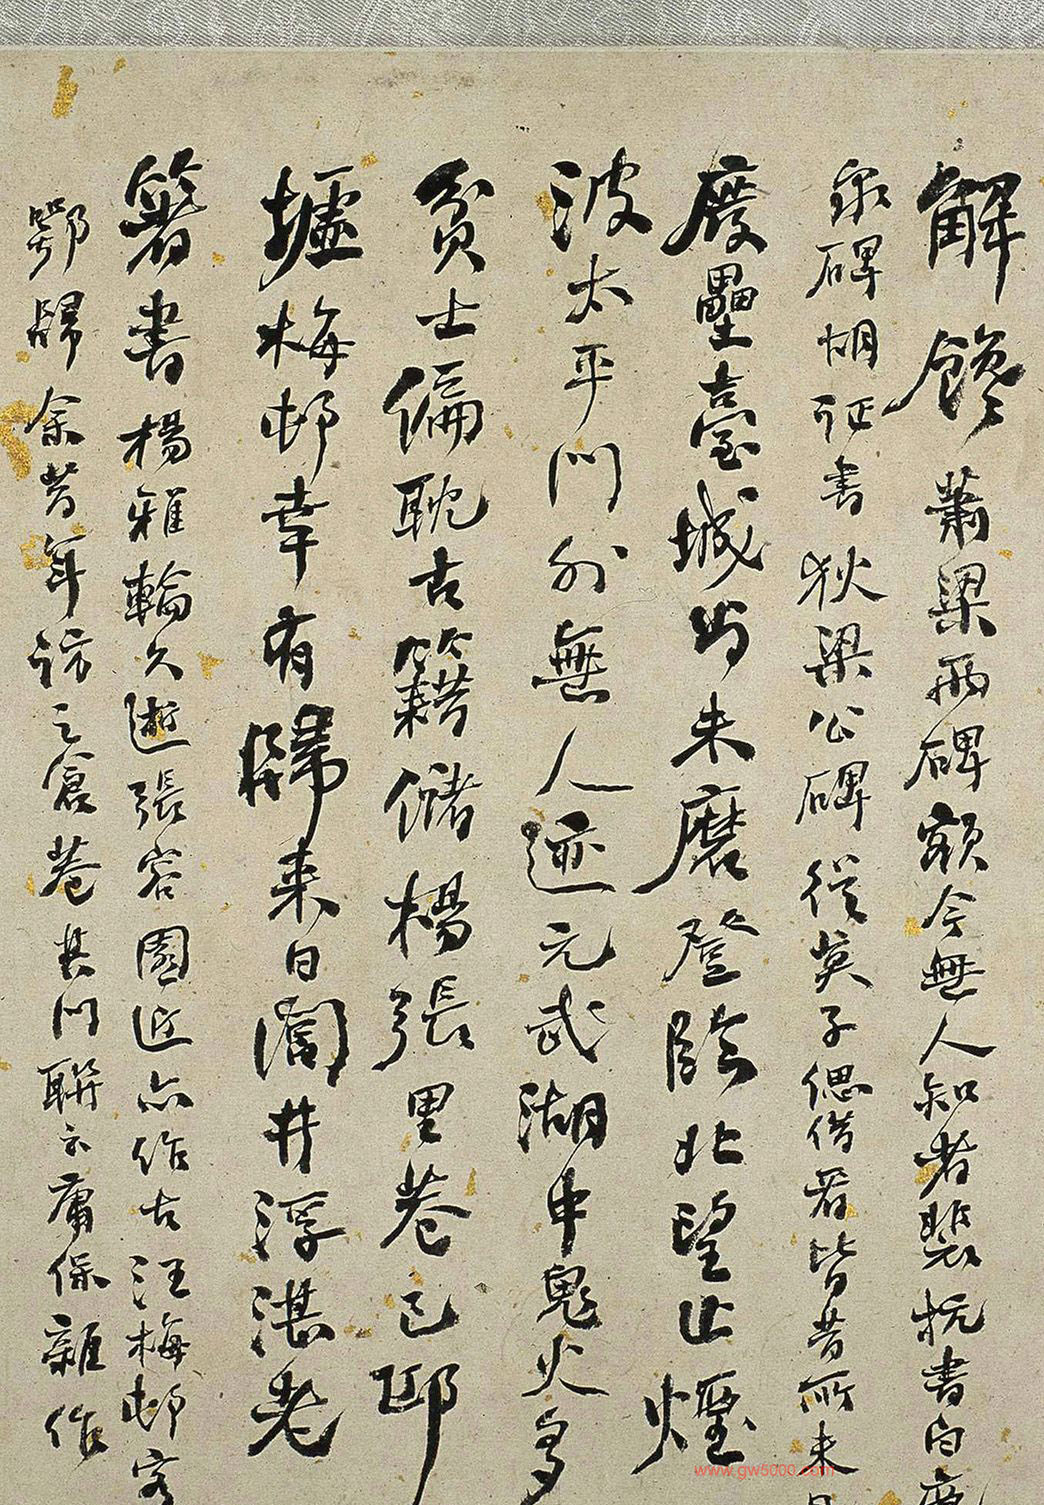 解饞蕭梁兩碑額今無人知者裴抗書白鹿
泉碑胡证書狄梁公碑從莫子偲借看皆昔所未
廢壘臺城尚未磨登臨北望止煙
波太平門外無人迹元武湖中鬼火多
貧士偏耽古籍儲楊張里巷已邱
墟梅邨幸有歸來日閭井浮湛老
箸書楊雅輪久逝張容園近亦作古汪梅邨客
鄂歸余昔年訪之倉巷其門聯云庸保雜作
www.gw5000.com